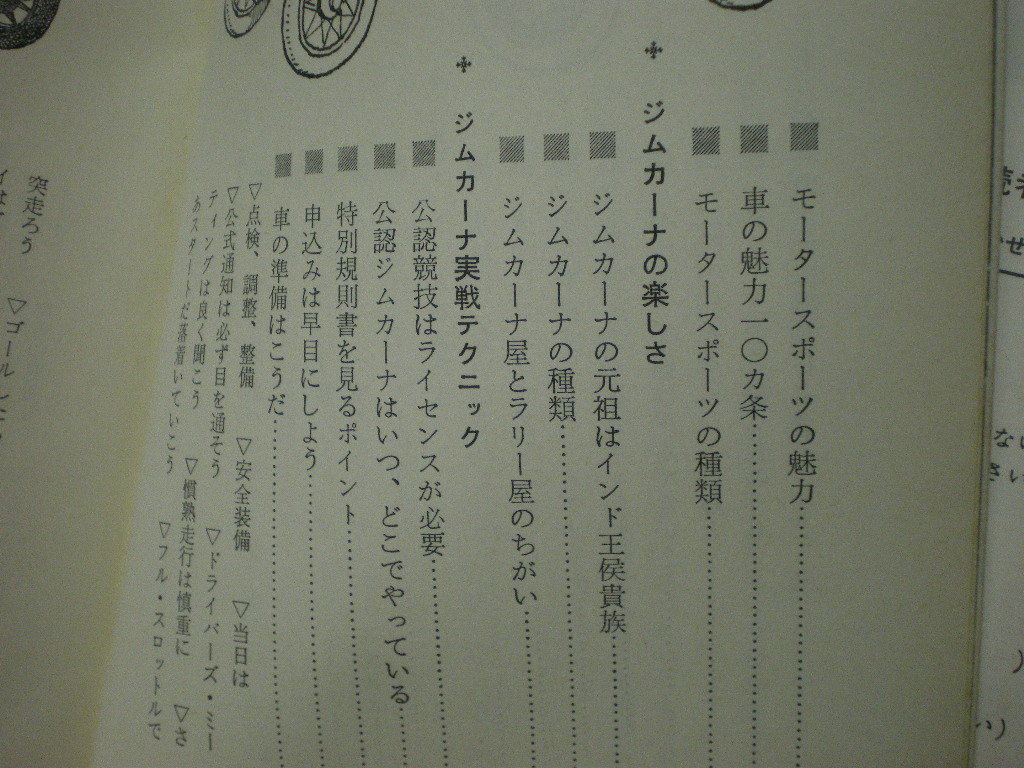 モータースポーツの魅力
車の魅力一〇カ条
モータースポーツの種類
ジムカーナの楽しさ
ジムカーナの元祖はインド王侯貴族
ジムカーナの種類
ジムカーナ屋とラリー屋のちがい
ジムカーナ実戦テクニック
公認競技はライセンスが必要
公認ジムカーナはいつ、どこでやっている
特別規則書を見るポイント
申込みは早目にしよう
車の準備はこうだ
▽点検、調整、整備 ▽安全装備 ▽当日は
▽公式通知は必ず目を通そう ▽ドライバーズ・ミー
ティングは良く聞こう ▽慣熟走行は慎重に ▽さ
あスタートだ落着いていこう ▽フル・スロットルで
突走ろう ▽ゴール